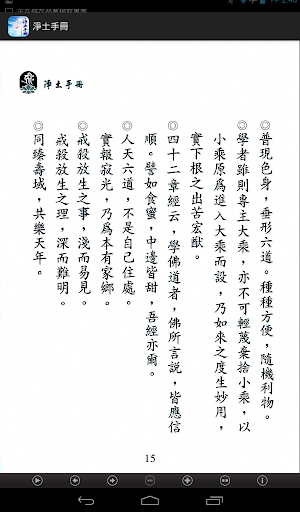 淨土手冊
淨土手冊
◎普現色身，垂形六道。種種方便，隨機利物。
◎學者雖則專主大乘，亦不可輕蔑棄捨小乘，以
小乘原為進入大乘而設，乃如來之度生妙用，
實下根之出苦宏猷。
◎四十二章經云，學佛道者，佛所言說，皆應信
順。譬如食蜜，中邊皆甜，吾經亦爾。
◎人天六道，不是自己住處。
實報寂光，乃為本有家鄉。
◎戒殺放生之事，淺而易見。
戒殺放生之理，深而難明。
◎同臻壽域，共樂天年。
15